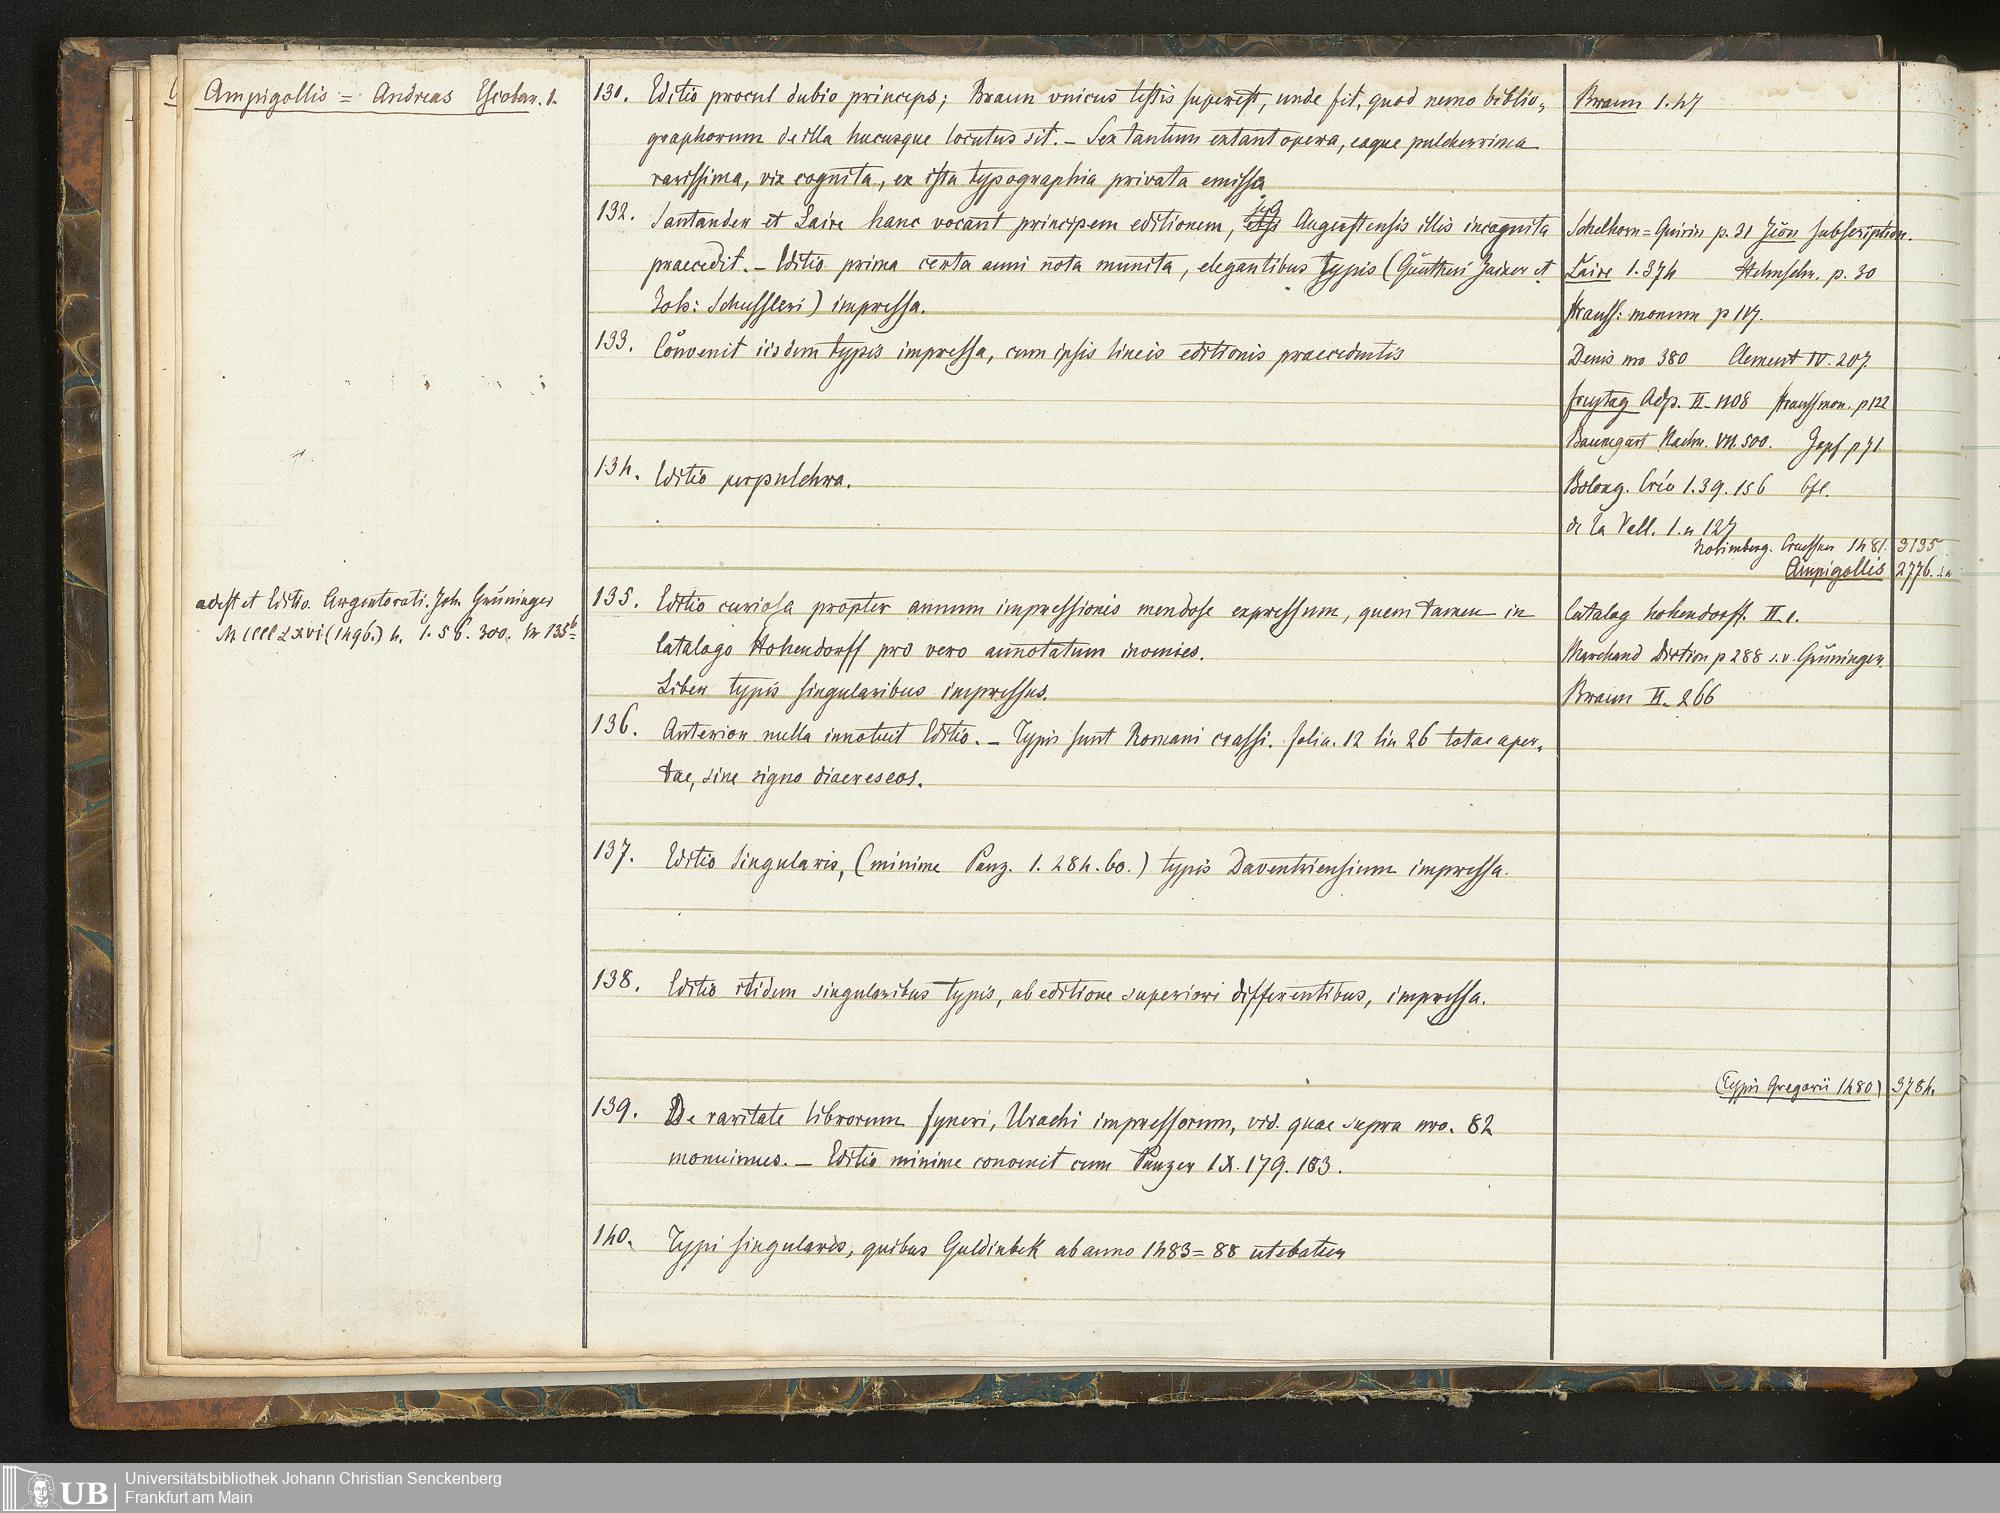 Ampigollis = Andreas Escobar. 1.
130. Editio procul dubio princeps; Braun unicus testis superest, unde fit, quod nemo biblio=
graphorum de illa hucusque locutus sit. – Sex tantum extant opera, eaque pulcherrima
rarissima, vix cognita, ex ista typographia privata emissa.
Braun 1. 47
132. Santander et Laire hanc vocant principem editionem, sed Augustensis illis incognita
praecedit. – Editio prima certa anni nota munita, elegantibus typis (Güntheri Zainer et
Joh: Schussleri) impressa.
133. Convenit iisdem typis impressa, cum ipsis lineis editionis praecedentis
134. Editio perpulchra.
Schelhorn = Quirin p. 31 subscription.
Laire 1. 374 Helmschr. p. 30
Strauss: monum p 117.
Denis no 380 Clement IV. 207.
Freytag Adp. II. 1108 Strauss mon. p 122
Baumgart Nachr. VII. 500. Zapf p 71
Bolong. Crev 1. 39. 156
de la Vall. 1. n 127
Norimberg. Creussner 1481. 3135
Ampigollis 2776.
adest et Editio. Argentorati. Joh. Grüninger
M CCCC LXVI (1496.) 4. 1. 56. 300. Nr 135b
135. Editio curiosa propter annum impressionis mendose expressum, quem tamen in
Catalogo Hohendorff pro vero annotatum invenies.
Liber typis singularibus impressus.
Catalog Hohendorff. II
Marchand Diction p 288 s.v. Grüninger.
Braun II. 266
136. Anterior nulla innotuit Editio. – Typi sunt Romani crassi. folia. 12 lin 26 totae aper=
tae, sine signo diaereseos.
137. Editio singularis, (minime Panz. 1. 284. 60.) typis Daventriensium impressa.
138. Editio itidem singularibus typis, ab editione superiori differentibus, impressa.
(Typis Gregorii 1480) 3784.
139. De raritate librorum Fyneri, Urachi impressorum, vid. quae supra nro. 82
monuimus. – Editio minime convenit cum Panzer IX. 179. 183.
140. Typi singulares, quibus Guldinbek ab anno 1483 = 88 utebatur
UB Universitätsbibliothek Johann Christian Senckenberg
Frankfurt am Main